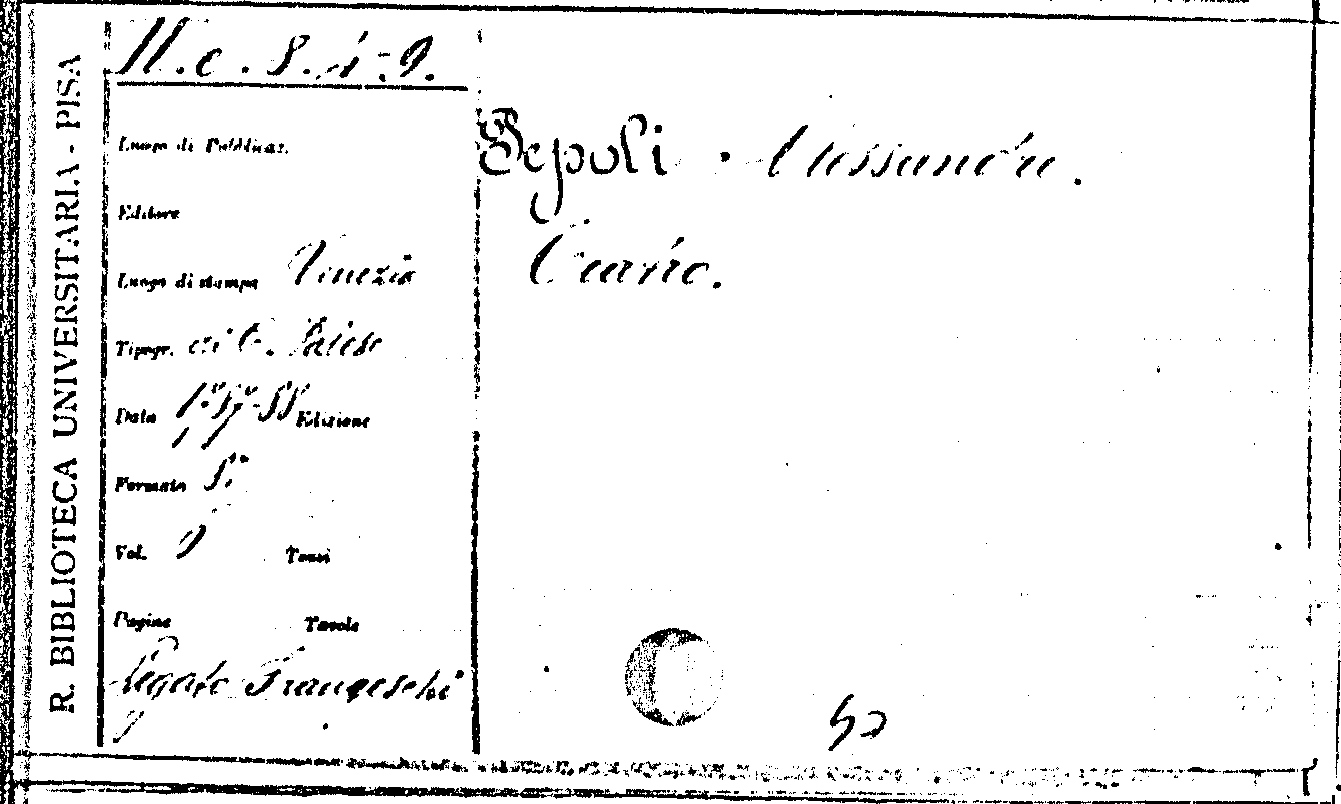 R. BIBLIOTECA UNIVERSITARIA - PISA
H.c.8.4-9.
Luogo di Pubblicaz.
Editore
Luogo di stampa Venezia
Tipogr. di C. Palese
Data 1787-88 Edizione
Formato 8°
Vol. Tomi
Pagine Tavole
Legato Franceschi
Pepoli Alessandro.
Teatro.